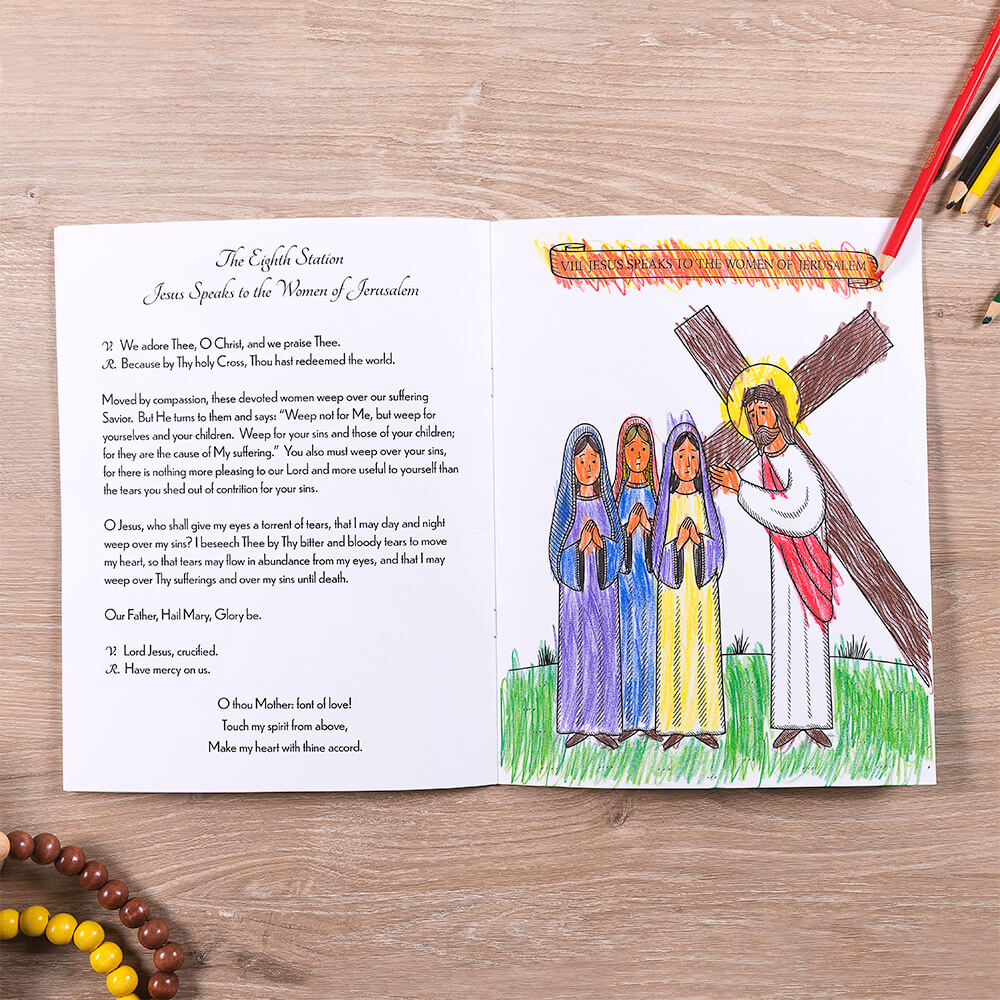 The Eighth Station
Jesus Speaks to the Women of Jerusalem
V. We adore Thee, O Christ, and we praise Thee.
R. Because by Thy holy Cross, Thou hast redeemed the world.
Moved by compassion, these devoted women weep over our suffering
Savior. But He turns to them and says: “Weep not for Me, but weep for
yourselves and your children. Weep for your sins and those of your children;
for they are the cause of My suffering.” You also must weep over your sins,
for there is nothing more pleasing to our Lord and more useful to yourself than
the tears you shed out of contrition for your sins.
O Jesus, who shall give my eyes a torrent of tears, that I may day and night
weep over my sins? I beseech Thee by Thy bitter and bloody tears to move
my heart, so that tears may flow in abundance from my eyes, and that I may
weep over Thy sufferings and over my sins until death.
Our Father, Hail Mary, Glory be.
V. Lord Jesus, crucified.
R. Have mercy on us.
O thou Mother: font of love!
Touch my spirit from above,
Make my heart with thine accord.
VIII. JESUS SPEAKS TO THE WOMEN OF JERUSALEM